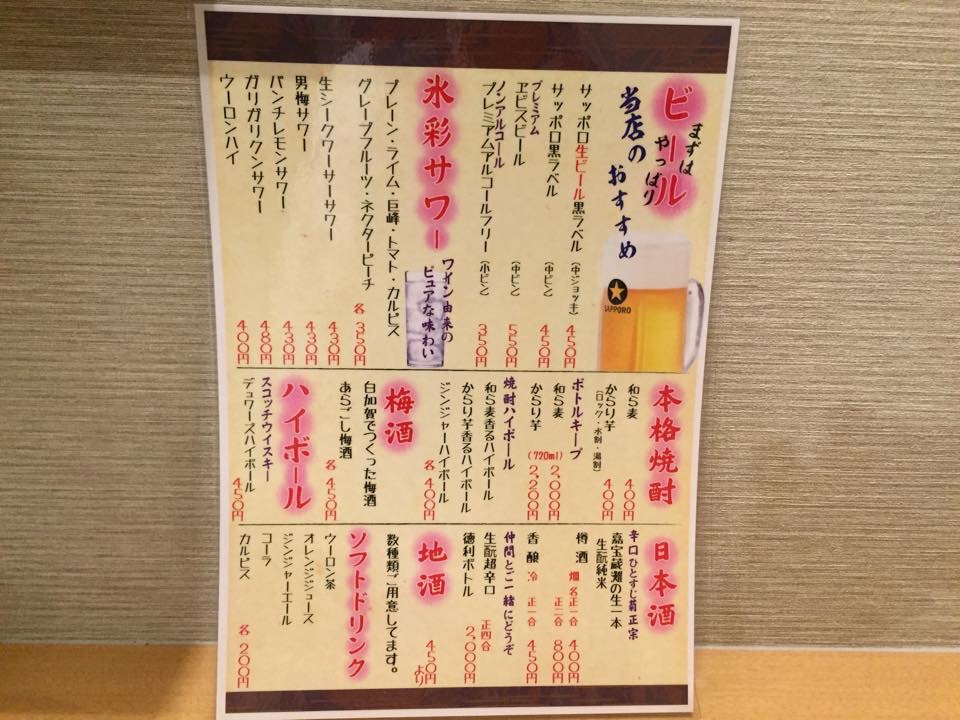 まずは
やっぱり
ビール
当店の
おすすめ
SAPPORO
サッポロ生ビール黒ラベル (中ジョッキ) 450円
サッポロ黒ラベル (中ビン) 450円
プレミアム
ヱビスビール (中ビン) 550円
ノンアルコール
プレミアムアルコールフリー (小ビン) 350円
氷彩サワー
ワイン由来の
ピュアな味わい
プレーン・ライム・巨峰・トマト・カルピス
グレープフルーツ・ネクターピーチ 各350円
生シークワーサーサワー 430円
男梅サワー 430円
パンチレモンサワー 430円
ガリガリクンサワー 480円
ウーロンハイ 400円
本格焼酎
和ら麦 400円
からり芋 400円
(ロック・水割・湯割)
ボトルキープ
和ら麦 (720ml) 2,000円
からり芋 2,200円
焼酎ハイボール
和ら麦香るハイボール
からり芋香るハイボール
ジンジャーハイボール 各400円
梅酒
白加賀でつくった梅酒
あらごし梅酒 各450円
ハイボール
スコッチウイスキー
デュワーズハイボール 450円
日本酒
辛口ひとすじ菊正宗
嘉宝蔵灘の生一本
生酛純米
樽酒 燗 各正一合 400円
正二合 800円
香醸 冷 正一合 450円
仲間とご一緒にどうぞ
生酛超辛口
徳利ボトル 正四合 2,000円
地酒
450円より
数種類ご用意してます。
ソフトドリンク
ウーロン茶
オレンジジュース
ジンジャーエール
コーラ
カルピス 各200円